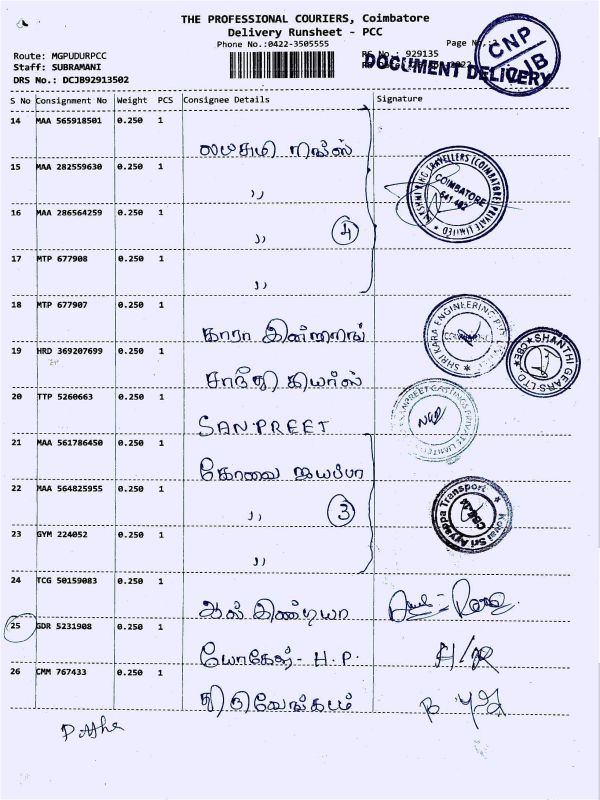 THE PROFESSIONAL COURIERS, Coimbatore
Delivery Runsheet - PCC
Phone No.:0422-3505555
Page No.:
Route: MGPUDURPCC
Staff: SUBRAMANI
DRS No.: DCJB92913502
929135
DOCUMENT DELIVERY
CNP
CJB
S No Consignment No Weight PCS Consignee Details Signature
14 MAA 565918501 0.250 1
15 MAA 282559630 0.250 1 ,,
16 MAA 286564259 0.250 1 ,, 4
17 MTP 677908 0.250 1 ,,
18 MTP 677907 0.250 1 காரா
19 HRD 369207699 0.250 1 சாந்தி கியர்ஸ்
20 TTP 5260663 0.250 1 SANPREET
21 MAA 561786450 0.250 1 கோவை ஐயப்பா
22 MAA 564825955 0.250 1 ,, 3
23 GYM 224052 0.250 1 ,,
24 TCG 50159083 0.250 1 ஆல் இண்டியா
25 GDR 5231908 0.250 1 யோகேஷ் - H.P.
26 CMM 767433 0.250 1 திருவேங்கடம்
TRAVELLERS (COIMBATORE) PRIVATE LIMITED
COIMBATORE
641 402
SHRI KARA ENGINEERING
SHANTHI GEARS LTD.
CBE
SANPREET CASTINGS PRIVATE LIMITED
Kovai Sri Ayyappa Transport